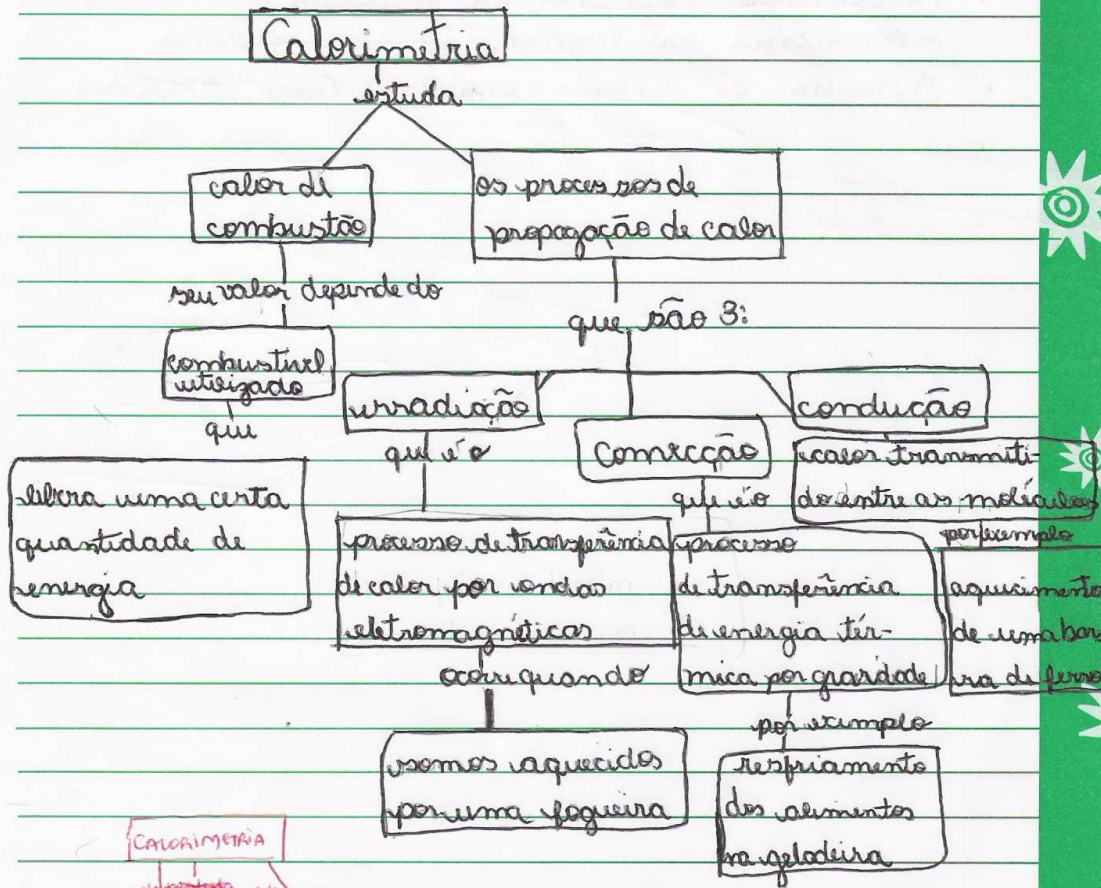 Calorimetria
estuda
calor de
combustão
os processos de
propagação de calor
seu valor depende do
que são 3:
combustível
utilizado
que
libera uma certa
quantidade de
energia
irradiação
que é o
processo de transferência
de calor por ondas
eletromagnéticas
ocorre quando
somos aquecidos
por uma fogueira
Convecção
que é o
processo
de transferência
de energia tér-
mica por gravidade
por exemplo
resfriamento
dos alimentos
na geladeira
condução
calor transmiti-
do entre as moléculas
por exemplo
aquecimento
de uma bar-
ra de ferro
CALORIMETRIA